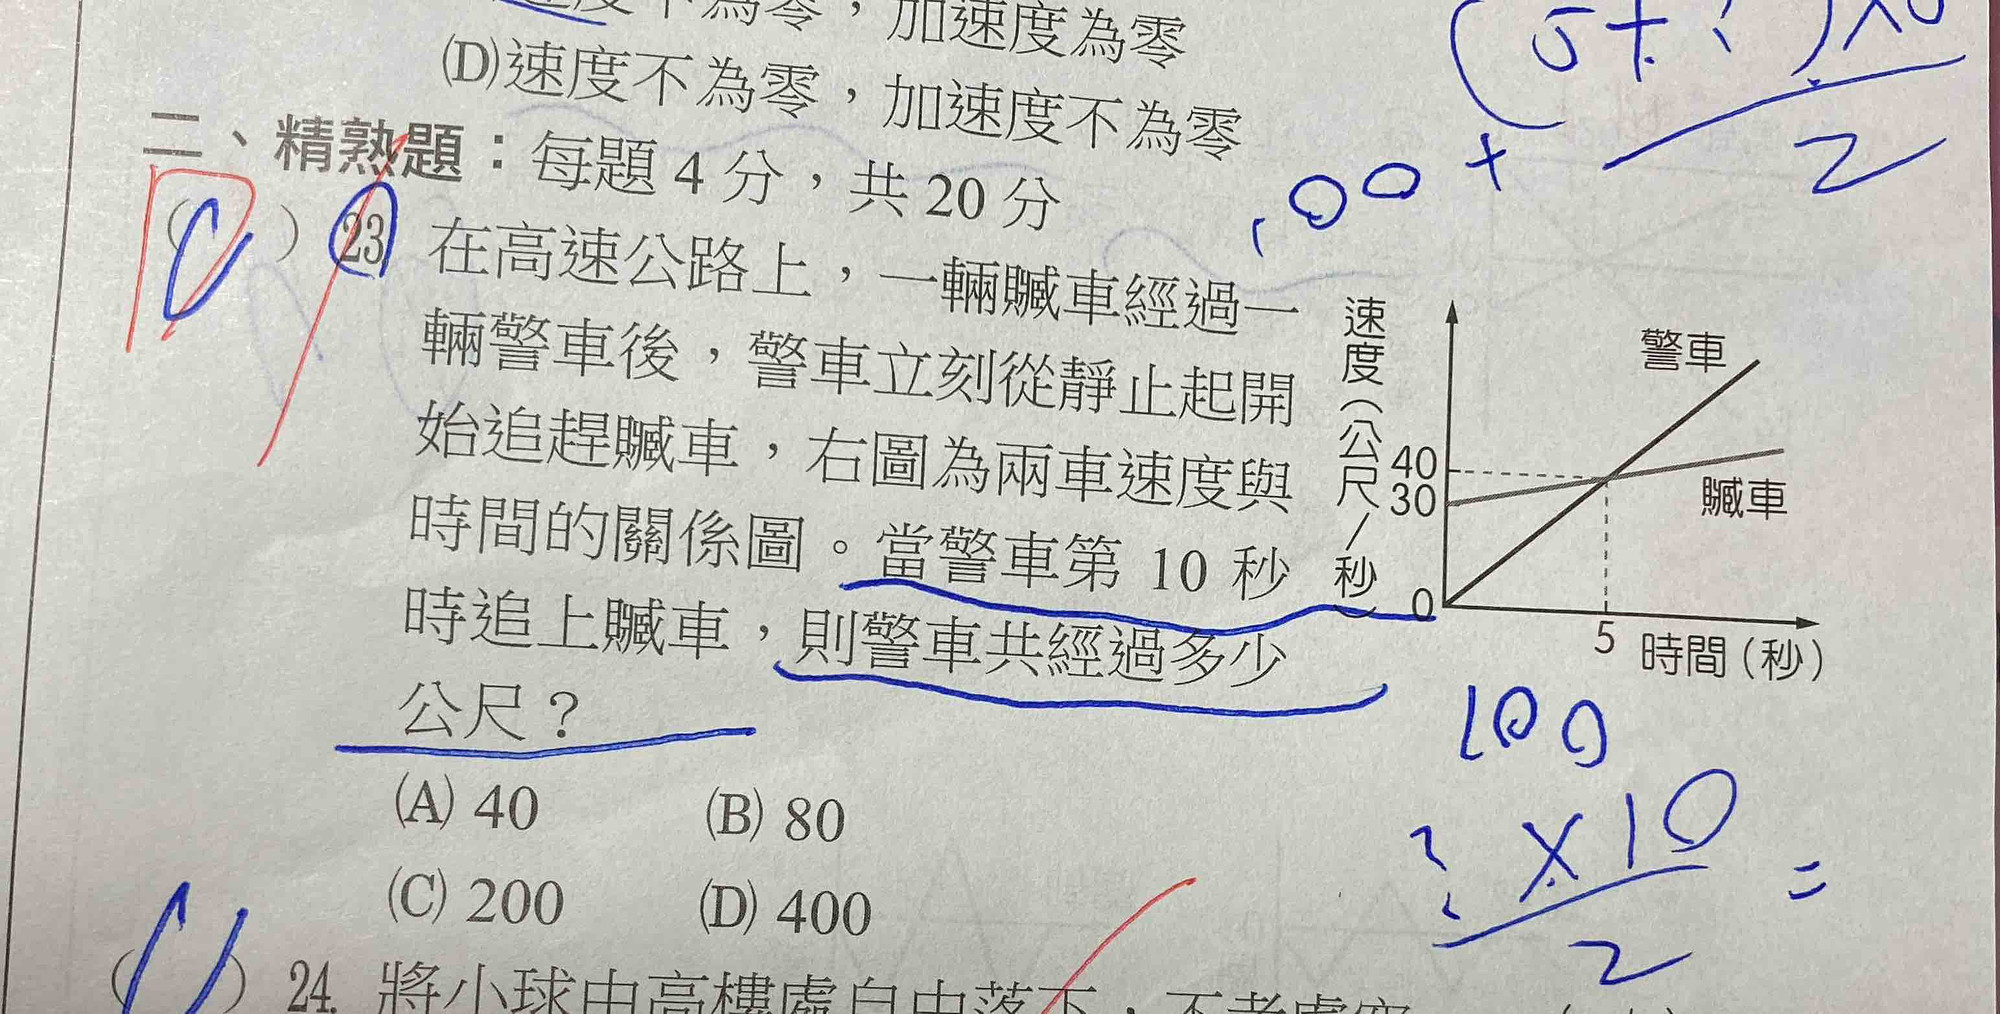 度不為零，加速度為零
(D)速度不為零，加速度不為零
二、精熟題：每題4分，共20分
( ) 23. 在高速公路上，一輛贓車經過一
輛警車後，警車立刻從靜止起開
始追趕贓車，右圖為兩車速度與
時間的關係圖。當警車第 10 秒
時追上贓車，則警車共經過多少
公尺？
(A) 40 (B) 80
(C) 200 (D) 400
速度(公尺/秒)
警車
40
30
贓車
0
5
時間(秒)
100
? × 10 =
2
100 +
2
( ) 24. 將小球由高樓處自由落下，不考慮空